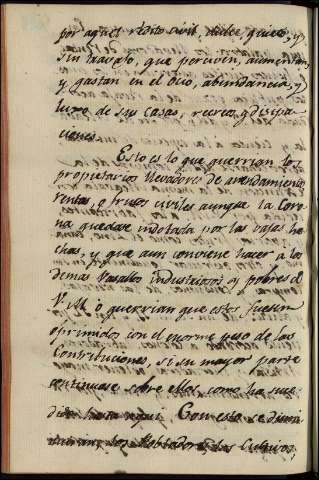 por aquel rédito civil, dulce, quieto, y
sin travajo, que perciven, aumentan,
y gastan en el ócio, abundancia, y
luxo de sus casas, recreos, y disipa
ciones.
Esto es lo que querrian los
propietarios llevadores de arrendamientos
rentas, o frutos civiles aunque la Coro
na quedase indotada por las bajas he
chas, y que aun conviene hacer a los
demas Vasallos industriosos y pobres de
V.M. o querrian que estos fuesen
oprimidos con el enorme peso de las
Contribuciones, si su mayor parte
continuase sobre ellos, como ha suce
dido hasta aqui. Con esto se dismi
nuirian los Pobladores, los Cultivos,